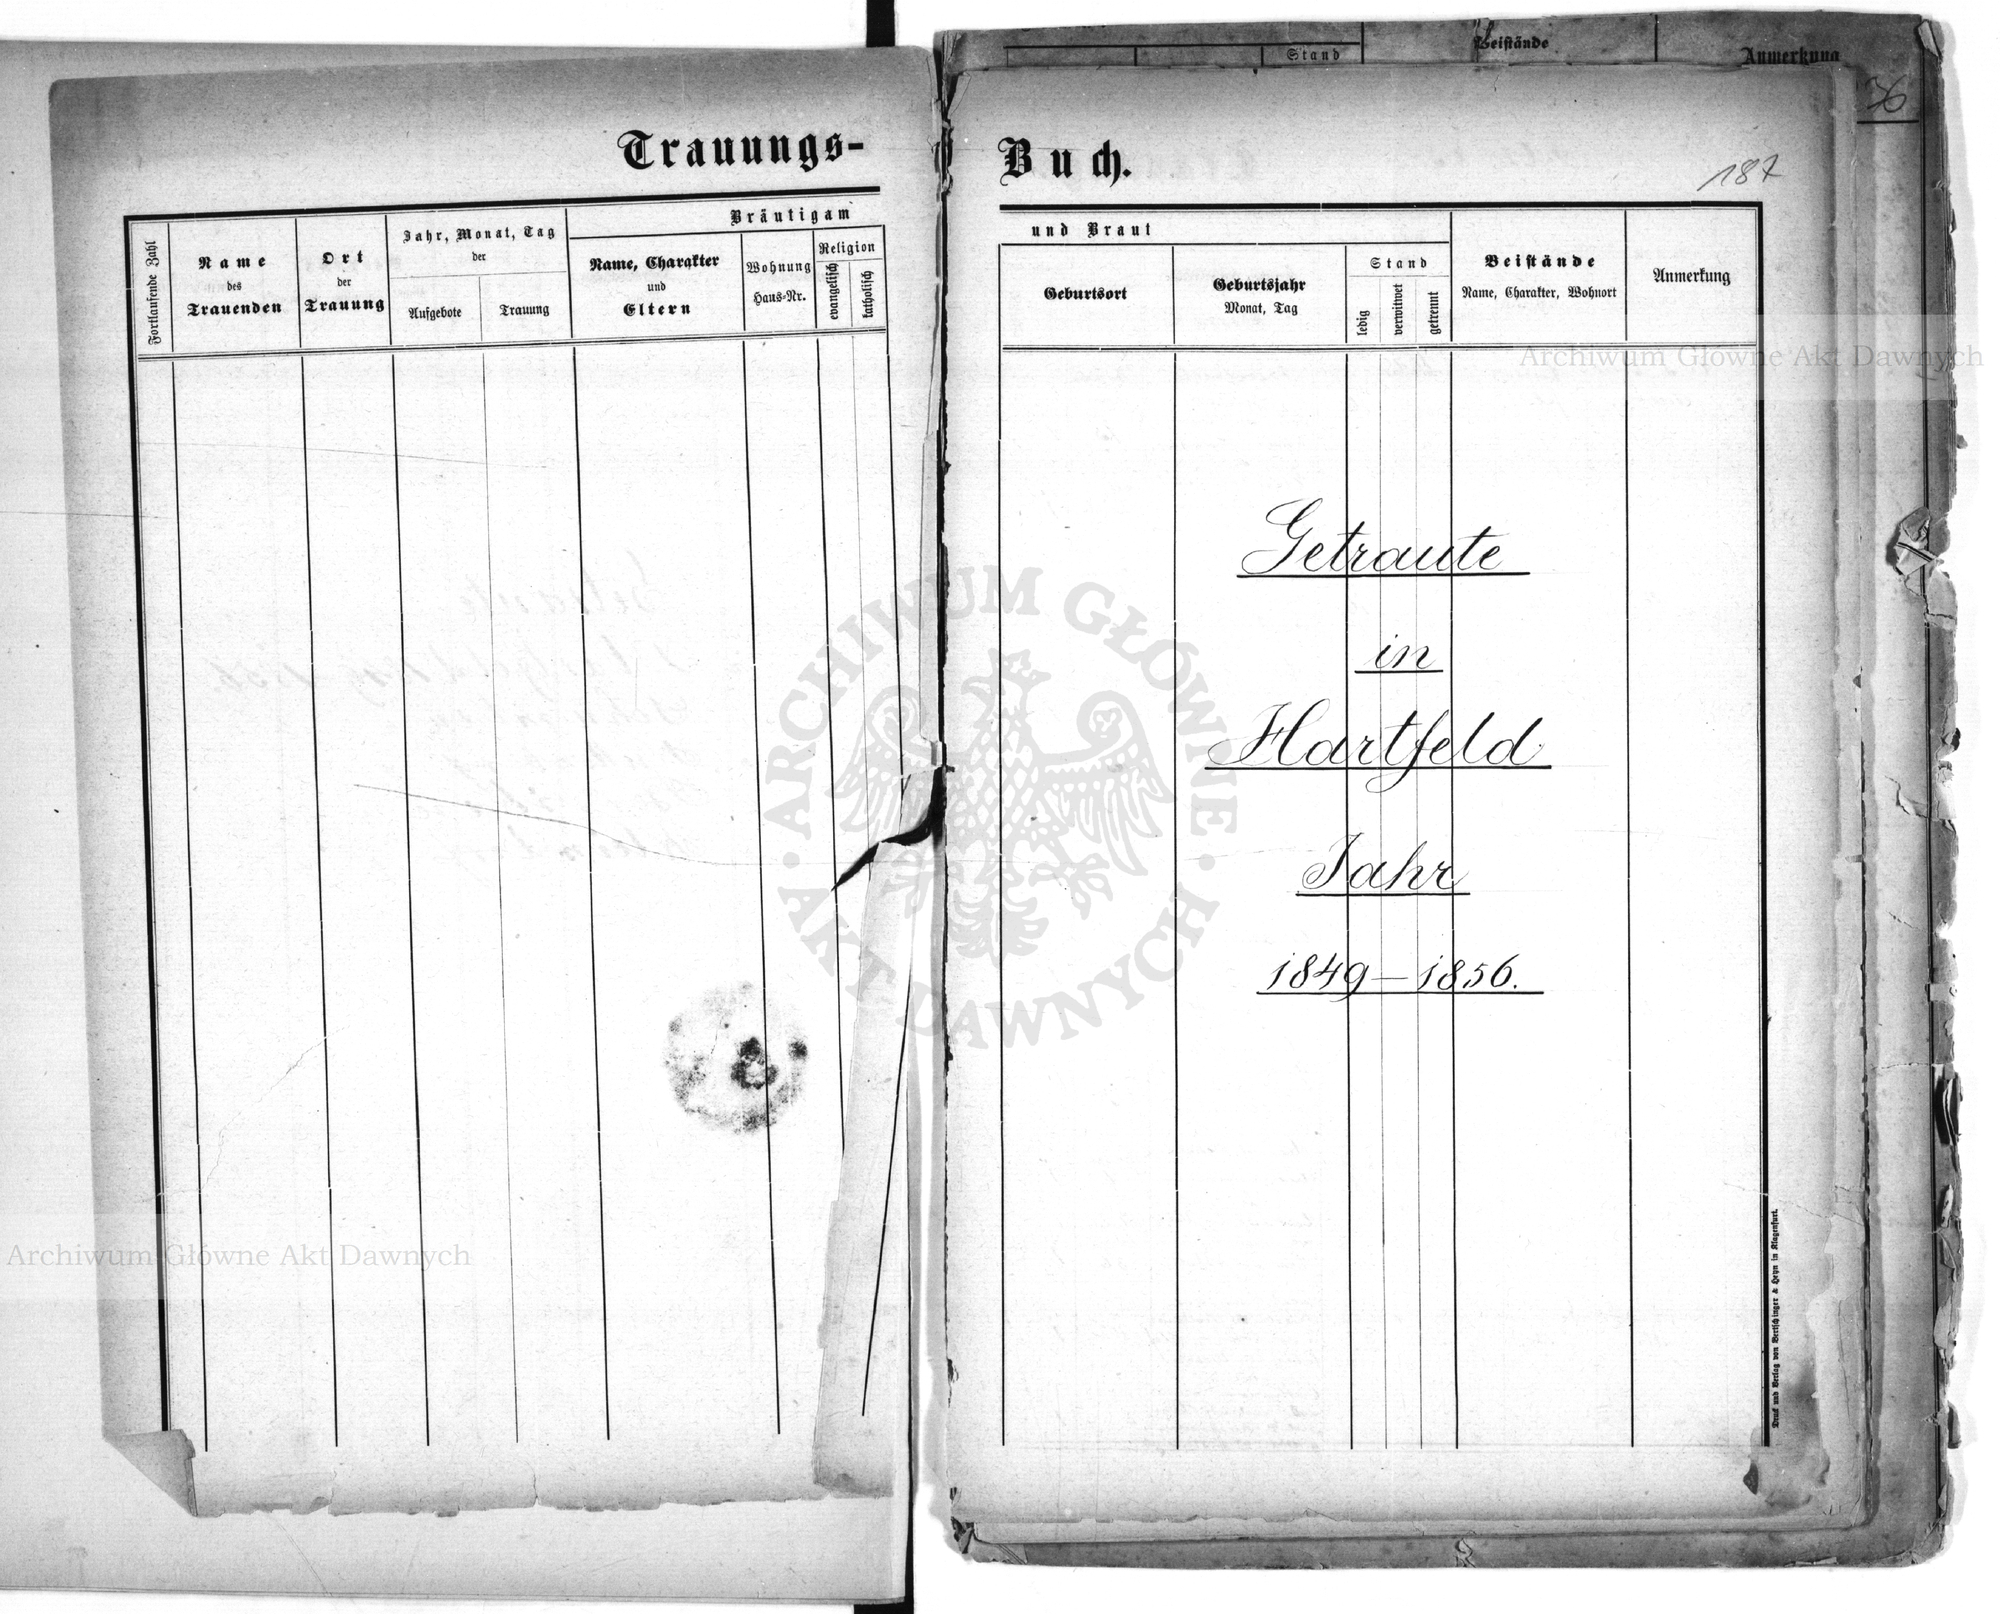 Trauungs-
Fortlaufende Zahl
Name
des
Trauenden
Ort
der
Trauung
Jahr, Monat, Tag
der
Aufgebote
Trauung
Bräutigam
Name, Charakter
und
Eltern
Wohnung
Haus-Nr.
Religion
evangelisch
katholisch
Stand
Beistände
Anmerkung
36
Buch.
187
und Braut
Geburtsort
Geburtsjahr
Monat, Tag
Stand
ledig
verwitwet
getrennt
Beistände
Name, Charakter, Wohnort
Anmerkung
Archiwum Główne Akt Dawnych
Getraute
in
Hartfeld
Jahr
1849 – 1856.
ARCHIWUM GŁÓWNE
· AKT DAWNYCH ·
Archiwum Główne Akt Dawnych
Druck und Verlag von Bertschinger & Heyn in Klagenfurt.